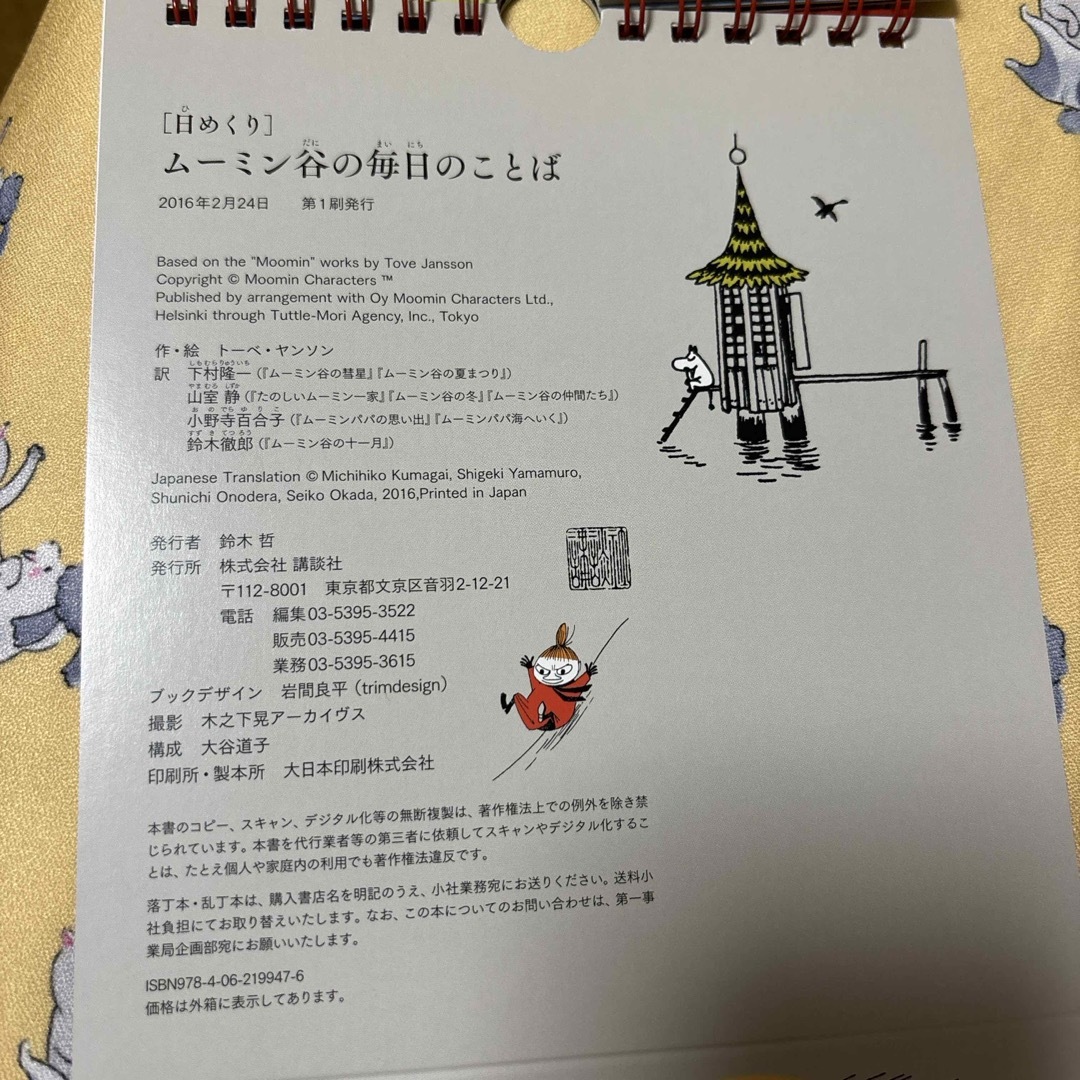 [日めくり]
ムーミン谷の毎日のことば
2016年2月24日 第1刷発行
Based on the "Moomin" works by Tove Jansson
Copyright © Moomin Characters ™
Published by arrangement with Oy Moomin Characters Ltd.,
Helsinki through Tuttle-Mori Agency, Inc., Tokyo
作・絵 トーベ・ヤンソン
訳 下村隆一(『ムーミン谷の彗星』『ムーミン谷の夏まつり』)
山室 静(『たのしいムーミン一家』『ムーミン谷の冬』『ムーミン谷の仲間たち』)
小野寺百合子(『ムーミンパパの思い出』『ムーミンパパ海へいく』)
鈴木徹郎(『ムーミン谷の十一月』)
Japanese Translation © Michihiko Kumagai, Shigeki Yamamuro,
Shunichi Onodera, Seiko Okada, 2016,Printed in Japan
発行者 鈴木 哲
発行所 株式会社 講談社
〒112-8001 東京都文京区音羽2-12-21
電話 編集03-5395-3522
販売03-5395-4415
業務03-5395-3615
ブックデザイン 岩間良平(trimdesign)
撮影 木之下晃アーカイヴス
構成 大谷道子
印刷所・製本所 大日本印刷株式会社
本書のコピー、スキャン、デジタル化等の無断複製は、著作権法上での例外を除き禁
じられています。本書を代行業者等の第三者に依頼してスキャンやデジタル化するこ
とは、たとえ個人や家庭内の利用でも著作権法違反です。
落丁本・乱丁本は、購入書店名を明記のうえ、小社業務宛にお送りください。送料小
社負担にてお取り替えいたします。なお、この本についてのお問い合わせは、第一事
業局企画部宛にお願いいたします。
ISBN978-4-06-219947-6
価格は外箱に表示してあります。